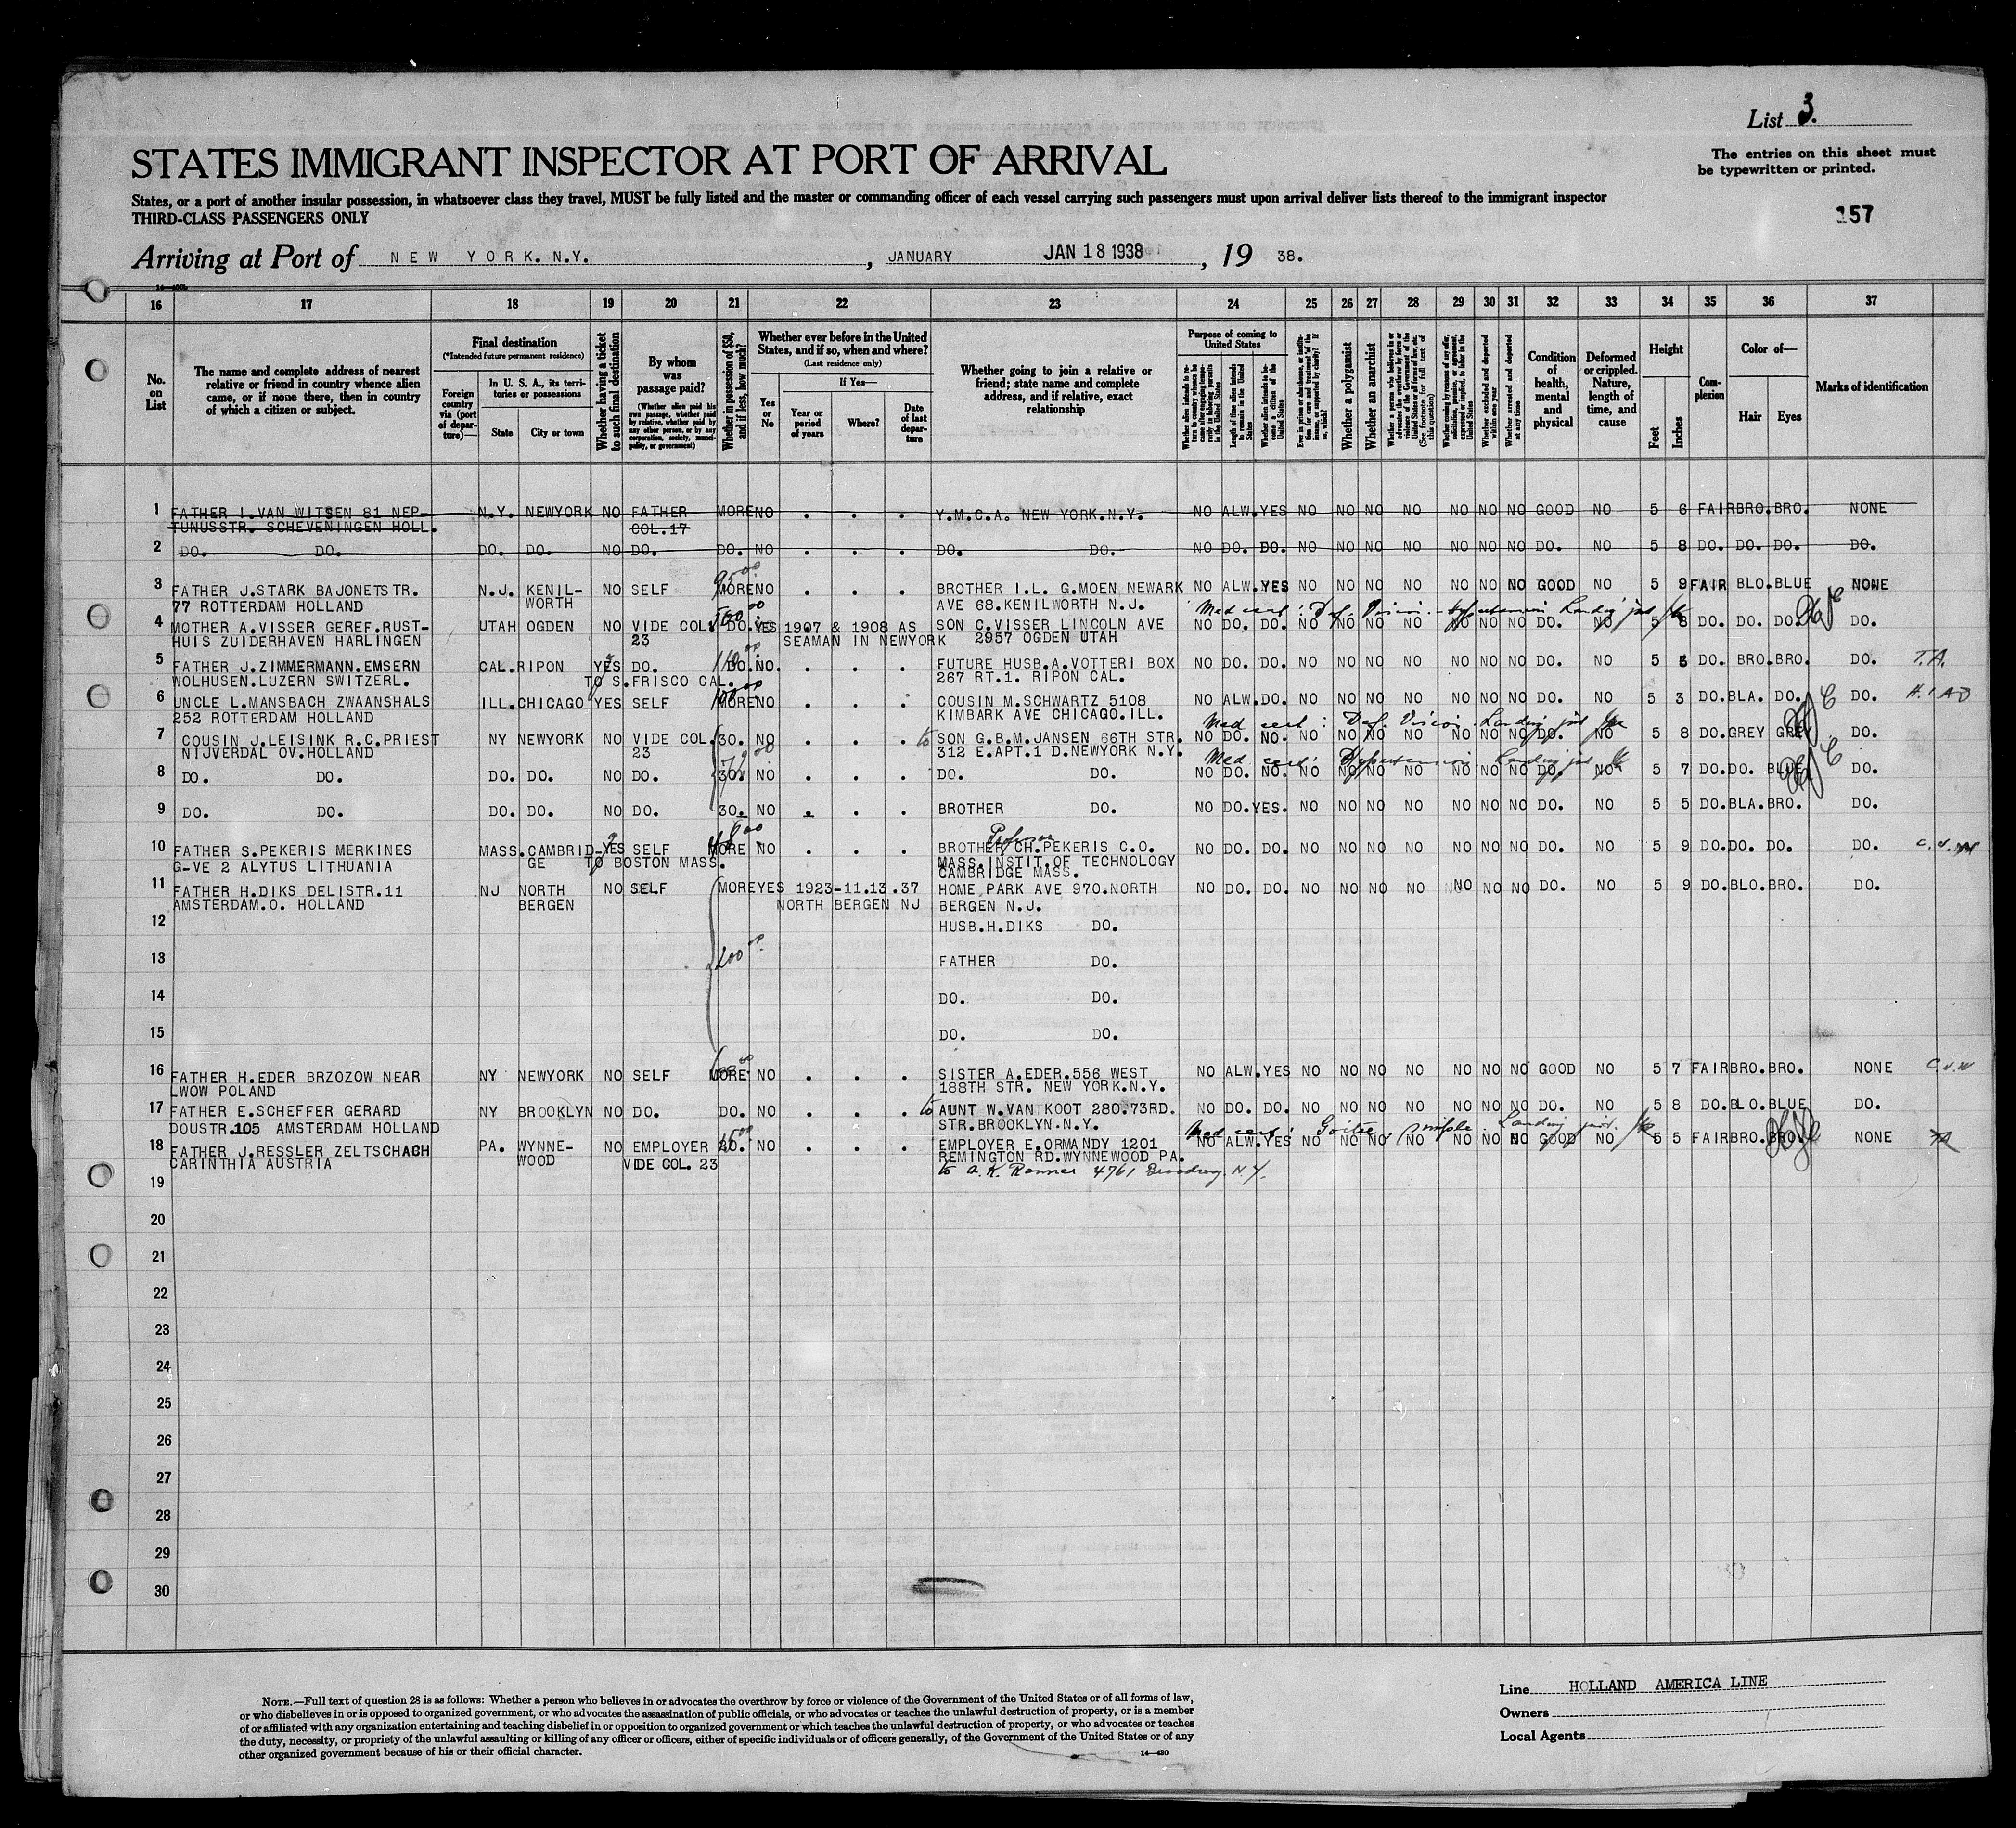 List 3.
The entries on this sheet must
be typewritten or printed.
STATES IMMIGRANT INSPECTOR AT PORT OF ARRIVAL
States, or a port of another insular possession, in whatsoever class they travel, MUST be fully listed and the master or commanding officer of each vessel carrying such passengers must upon arrival deliver lists thereof to the immigrant inspector
THIRD-CLASS PASSENGERS ONLY
157
Arriving at Port of NEW YORK. N.Y. , JANUARY JAN 18 1938 , 19 38.
16 17 18 19 20 21 22 23 24 25 26 27 28 29 30 31 32 33 34 35 36 37
No. on List
The name and complete address of nearest
relative or friend in country whence alien
came, or if none there, then in country
of which a citizen or subject.
Final destination
(*Intended future permanent residence)
Foreign country via (port of departure)—
In U. S. A., its territories or possessions
State
City or town
Whether having a ticket to such final destination
By whom was passage paid?
(Whether alien paid his own passage, whether paid by relative, whether paid by any other person, or by any corporation, society, municipality, or government)
Whether in possession of $50, and if less, how much?
Whether ever before in the United
States, and if so, when and where?
(Last residence only)
Yes or No
If Yes—
Year or period of years
Where?
Date of last departure
Whether going to join a relative or
friend; state name and complete
address, and if relative, exact
relationship
Purpose of coming to United States
Length of time alien intends to remain in the United States
Whether alien intends to become a citizen of the United States
Whether a polygamist
Whether an anarchist
Whether excluded and deported within one year
Whether arrested and deported at any time
Condition of health, mental and physical
Deformed or crippled. Nature, length of time, and cause
Height
Feet
Inches
Complexion
Color of—
Hair
Eyes
Marks of identification
1 FATHER I.VAN WITSEN 81 NEP- N.Y. NEWYORK NO FATHER MORE NO . . . Y.M.C.A. NEW YORK.N.Y. NO ALW. YES NO NO NO NO NO NO NO GOOD NO 5 6 FAIR BRO. BRO. NONE
TUNUSSTR. SCHEVENINGEN HOLL. COL.17
2 DO. DO. DO. DO. NO DO. DO. NO . . . DO. DO. NO DO. DO. NO NO NO NO NO NO NO DO. NO 5 8 DO. DO. DO. DO.
3 FATHER J.STARK BAJONETSTR. N.J. KENIL- NO SELF MORE NO . . . BROTHER I.L. G.MOEN NEWARK NO ALW. YES NO NO NO NO NO NO NO GOOD NO 5 9 FAIR BLO. BLUE NONE
77 ROTTERDAM HOLLAND WORTH AVE 68.KENILWORTH N.J.
4 MOTHER A.VISSER GEREF.RUST- UTAH OGDEN NO VIDE COL. DO. YES 1907 & 1908 AS SON C.VISSER LINCOLN AVE NO DO. DO. NO NO NO NO NO NO NO DO. NO 5 8 DO. DO. DO. DO.
HUIS ZUIDERHAVEN HARLINGEN 23 SEAMAN IN NEWYORK 2957 OGDEN UTAH
5 FATHER J.ZIMMERMANN.EMSERN CAL. RIPON YES DO. DO. NO. . . . FUTURE HUSB.A.VOTTERI BOX NO DO. DO. NO NO NO NO NO NO NO DO. NO 5 DO. BRO. BRO. DO. T.A.
WOLHUSEN.LUZERN SWITZERL. TO S.FRISCO CAL. 267 RT.1. RIPON CAL.
6 UNCLE L.MANSBACH ZWAANSHALS ILL. CHICAGO YES SELF MORE NO . . . COUSIN M.SCHWARTZ 5108 NO ALW. DO. NO NO NO NO NO NO NO DO. NO 5 3 DO. BLA. DO. DO.
252 ROTTERDAM HOLLAND KIMBARK AVE CHICAGO.ILL.
Med cert: Def. Vision. Landing
7 COUSIN J.LEISINK R.C.PRIEST NY NEWYORK NO VIDE COL. 30. NO . . . to SON G.B.M.JANSEN 66TH STR. NO DO. NO. NO NO NO NO NO NO NO DO. NO 5 8 DO. GREY GREY DO.
NIJVERDAL OV.HOLLAND 23 312 E.APT.1 D.NEWYORK N.Y.
Med cert: Hypertension. Landing
8 DO. DO. DO. DO. NO DO. 30. NO . . . DO. DO. NO DO. NO. NO NO NO NO NO NO NO DO. NO 5 7 DO. DO. BLUE DO.
9 DO. DO. DO. DO. NO DO. 30. NO . . . BROTHER DO. NO DO. YES. NO NO NO NO NO NO NO DO. NO 5 5 DO. BLA. BRO. DO.
Professor
10 FATHER S.PEKERIS MERKINES MASS. CAMBRID- YES SELF MORE NO . . . BROTHER CH.PEKERIS C.O. NO DO. DO. NO NO NO NO NO NO NO DO. NO 5 9 DO. DO. DO. DO.
G-VE 2 ALYTUS LITHUANIA GE TO BOSTON MASS. MASS.INSTIT.OF TECHNOLOGY
CAMBRIDGE MASS.
11 FATHER H.DIKS DELISTR.11 NJ NORTH NO SELF MORE YES 1923-11.13.37 HOME PARK AVE 970.NORTH NO DO. DO. NO NO NO NO NO NO NO DO. NO 5 9 DO. BLO. BRO. DO.
AMSTERDAM.O. HOLLAND BERGEN NORTH BERGEN NJ BERGEN N.J.
12 HUSB.H.DIKS DO.
13 200 00 FATHER DO.
14 DO. DO.
15 DO. DO.
16 FATHER H.EDER BRZOZOW NEAR NY NEWYORK NO SELF MORE NO . . . SISTER A.EDER.556 WEST NO ALW. YES NO NO NO NO NO NO NO GOOD NO 5 7 FAIR BRO. BRO. NONE
LWOW POLAND 188TH STR. NEW YORK.N.Y.
17 FATHER E.SCHEFFER GERARD NY BROOKLYN NO DO. DO. NO . . . to AUNT W.VAN KOOT 280.73RD. NO DO. DO. NO NO NO NO NO NO NO DO. NO 5 8 DO. BLO. BLUE DO.
DOUSTR.105 AMSTERDAM HOLLAND STR.BROOKLYN.N.Y.
Med cert: Goitre, simple. Landing
18 FATHER J.RESSLER ZELTSCHACH PA. WYNNE- NO EMPLOYER NO . . . EMPLOYER E.ORMANDY 1201 NO ALW. YES NO NO NO NO NO NO NO GOOD NO 5 5 FAIR BRO. BRO. NONE
CARINTHIA AUSTRIA WOOD VIDE COL. 23 REMINGTON RD.WYNNEWOOD PA.
19 to A. K. 4761 Broadway. N.Y.
20
21
22
23
24
25
26
27
28
29
30
NOTE.—Full text of question 28 is as follows: Whether a person who believes in or advocates the overthrow by force or violence of the Government of the United States or of all forms of law,
or who disbelieves in or is opposed to organized government, or who advocates the assassination of public officials, or who advocates or teaches the unlawful destruction of property, or is a member
of or affiliated with any organization entertaining and teaching disbelief in or opposition to organized government or which teaches the unlawful destruction of property, or who advocates or teaches
the duty, necessity, or propriety of the unlawful assaulting or killing of any officer or officers, either of specific individuals or of officers generally, of the Government of the United States or of any
other organized government because of his or their official character.
14—430
Line HOLLAND AMERICA LINE
Owners
Local Agents